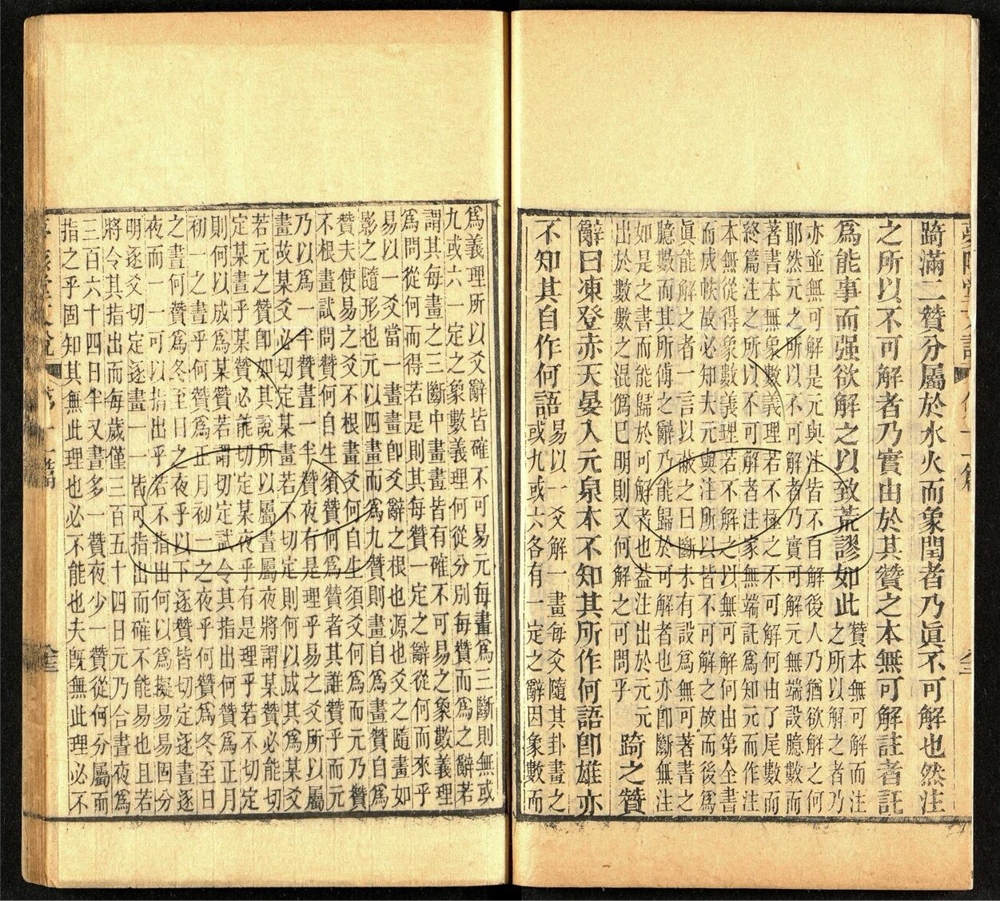 踦滿二贊分屬於水火而象閏者乃眞不可解也然注
之所以不可解者乃實由於其贊之本無可解註者託
爲能事而强欲解之以致荒謬如此贊本無可解而注
亦並無可解是元與注皆不自解後人乃猶欲解之何
耶然元之所以不可解者乃實可解元無端設臆數而
著書本無象數義理若不極之不可解何由了尾數而
終篇注之以不可解者注家無端託爲知元而作注
本無從得象數義理若不解之以無可解何由第全書
而成帙故必知大元與注所以皆不可解之故而後爲
眞能解之者一言以敝之曰斷未有設爲無可著書之
臆數而其所傅之數之辭乃能歸於可解者也亦卽斷無
如是之書而能歸於可解者也益注出於元元
出於數數之混僞已明則又何解之可問乎 踦之贊
辭曰凍登赤天晏入元泉本不知其所作何語卽雄亦
不知其自作何語易以一爻解一畫每爻隨其卦畫之
或九或六各有一定之辭因象數而
爲義理所以爻辭皆確不可易元每畫爲三斷則無或
九或六一定之象數義理何從分別每贊而爲之辭若
謂其每畫之三斷中畫畫皆有確不可易之象數義理
爲問從何而得若是則其每贊一定之辭從何而來乎
易以一爻當一畫畫卽爻辭之根也源也爻之隨畫如
影之隨形也元以四畫而爲九贊則畫自畫贊自贊
贊夫使易之爻不根畫爻何自生須爻何爲而元乃贊
不根畫試問贊何自生須贊何爲贊者其誰贊乎而元
乃以爲一半贊晝一半贊夜有是理乎易之爻所以屬
畫故某爻必切定某畫若不切定則何以成其爲某爻
若元之贊卽如其說所以屬晝屬夜將謂某贊必能切
定某晝乎某贊必能切定某夜乎有是理乎若不切定
則何以成爲某贊若謂切定試令其指出何贊爲正月
初一之晝乎何贊爲正月初一之夜乎何贊爲冬至日
之晝何贊爲冬至日之夜乎以下逐贊皆切定逐晝逐
夜而一一可以指出乎若不可指出而確不能易也且若
明逐爻切定逐畫一一皆可指出而確不可易
將令其指出而每歲僅三百五十四日元乃合晝夜爲
三百六十四日半又晝多一贊夜少一贊從何分屬而
指之乎固知其無此理也必不能也夫旣無此理必不